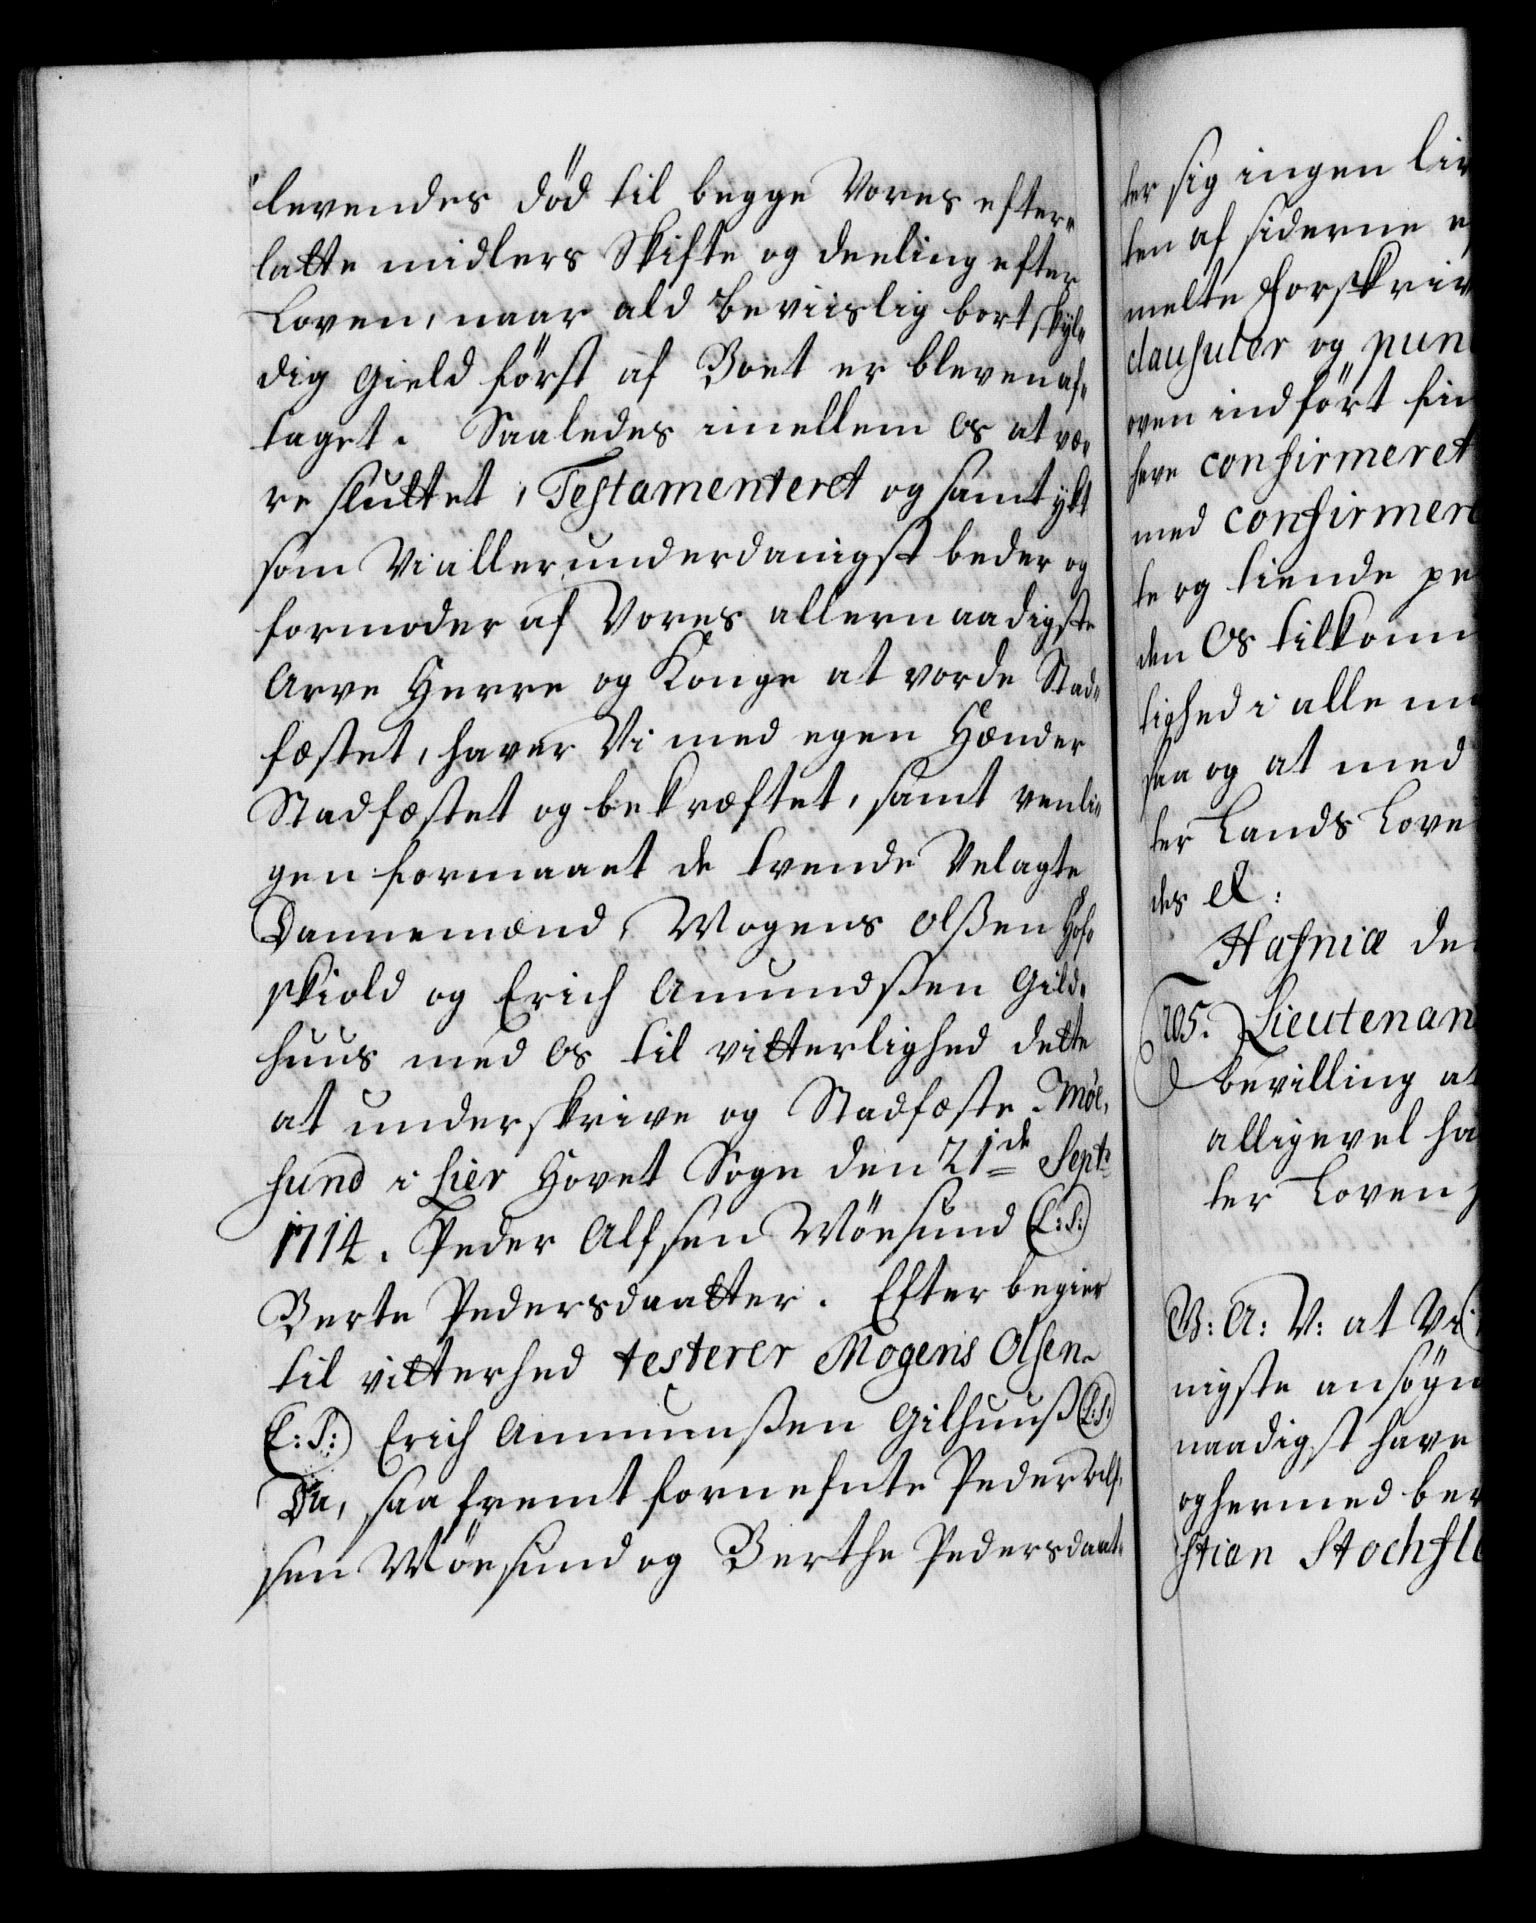 levendes död til begge Vores efter„
latte midlers Skifte og deeling efter
Loven, naar ald beviislig bortskyl„
dig gield först af Boet er bleven af„
taget. Saaledes imellem os at væ„
re sluttet, Testamenteret og samtykt
som Vi allerunderdanigst beder og
formoder af Vores allernaadigste
Arve Herre og Konge at vorde Stad„
fæstet, haver Vi med egen Hænder
Stadfæstet og bekræftet, samt venli„
gen formaaet de tvende Velagte
Dannemænd, Mogens Olßen Hof„
skiold og Erich Amundßen Gild„
huus med os til vitterlighed dette
at underskrive og Stadfæste. Möe,
sund i Lier Hovet Sogn den 21de Septr
1714. Peder Alfsen Möesund (L:S:)
Berte Pedersdaatter. Efter begier
til vitterhed testerer Mogens Olsen
(L:S:) Erich Ammunßen Gilhuuß (L:S:)
Da, saafremt fornefnte Peder Alf„
sen Möesund og Berthe Pedersdaat„
ter sig ingen liv
ten af siderne e
melte forskriv
clausuler og pun
oven indfört fin
have confirmeret
med confirmere
te og tiende pe
den Os tilkom
lighed i alle m
saa og at med
ter Lands Love
des &:
Hafniæ de
205. Lieutenan
bevilling at
alligevel ha
ter Loven
G: A: V: at Vi
nigste ansögn
naadigst have
og hermed bev
stian Stochfle